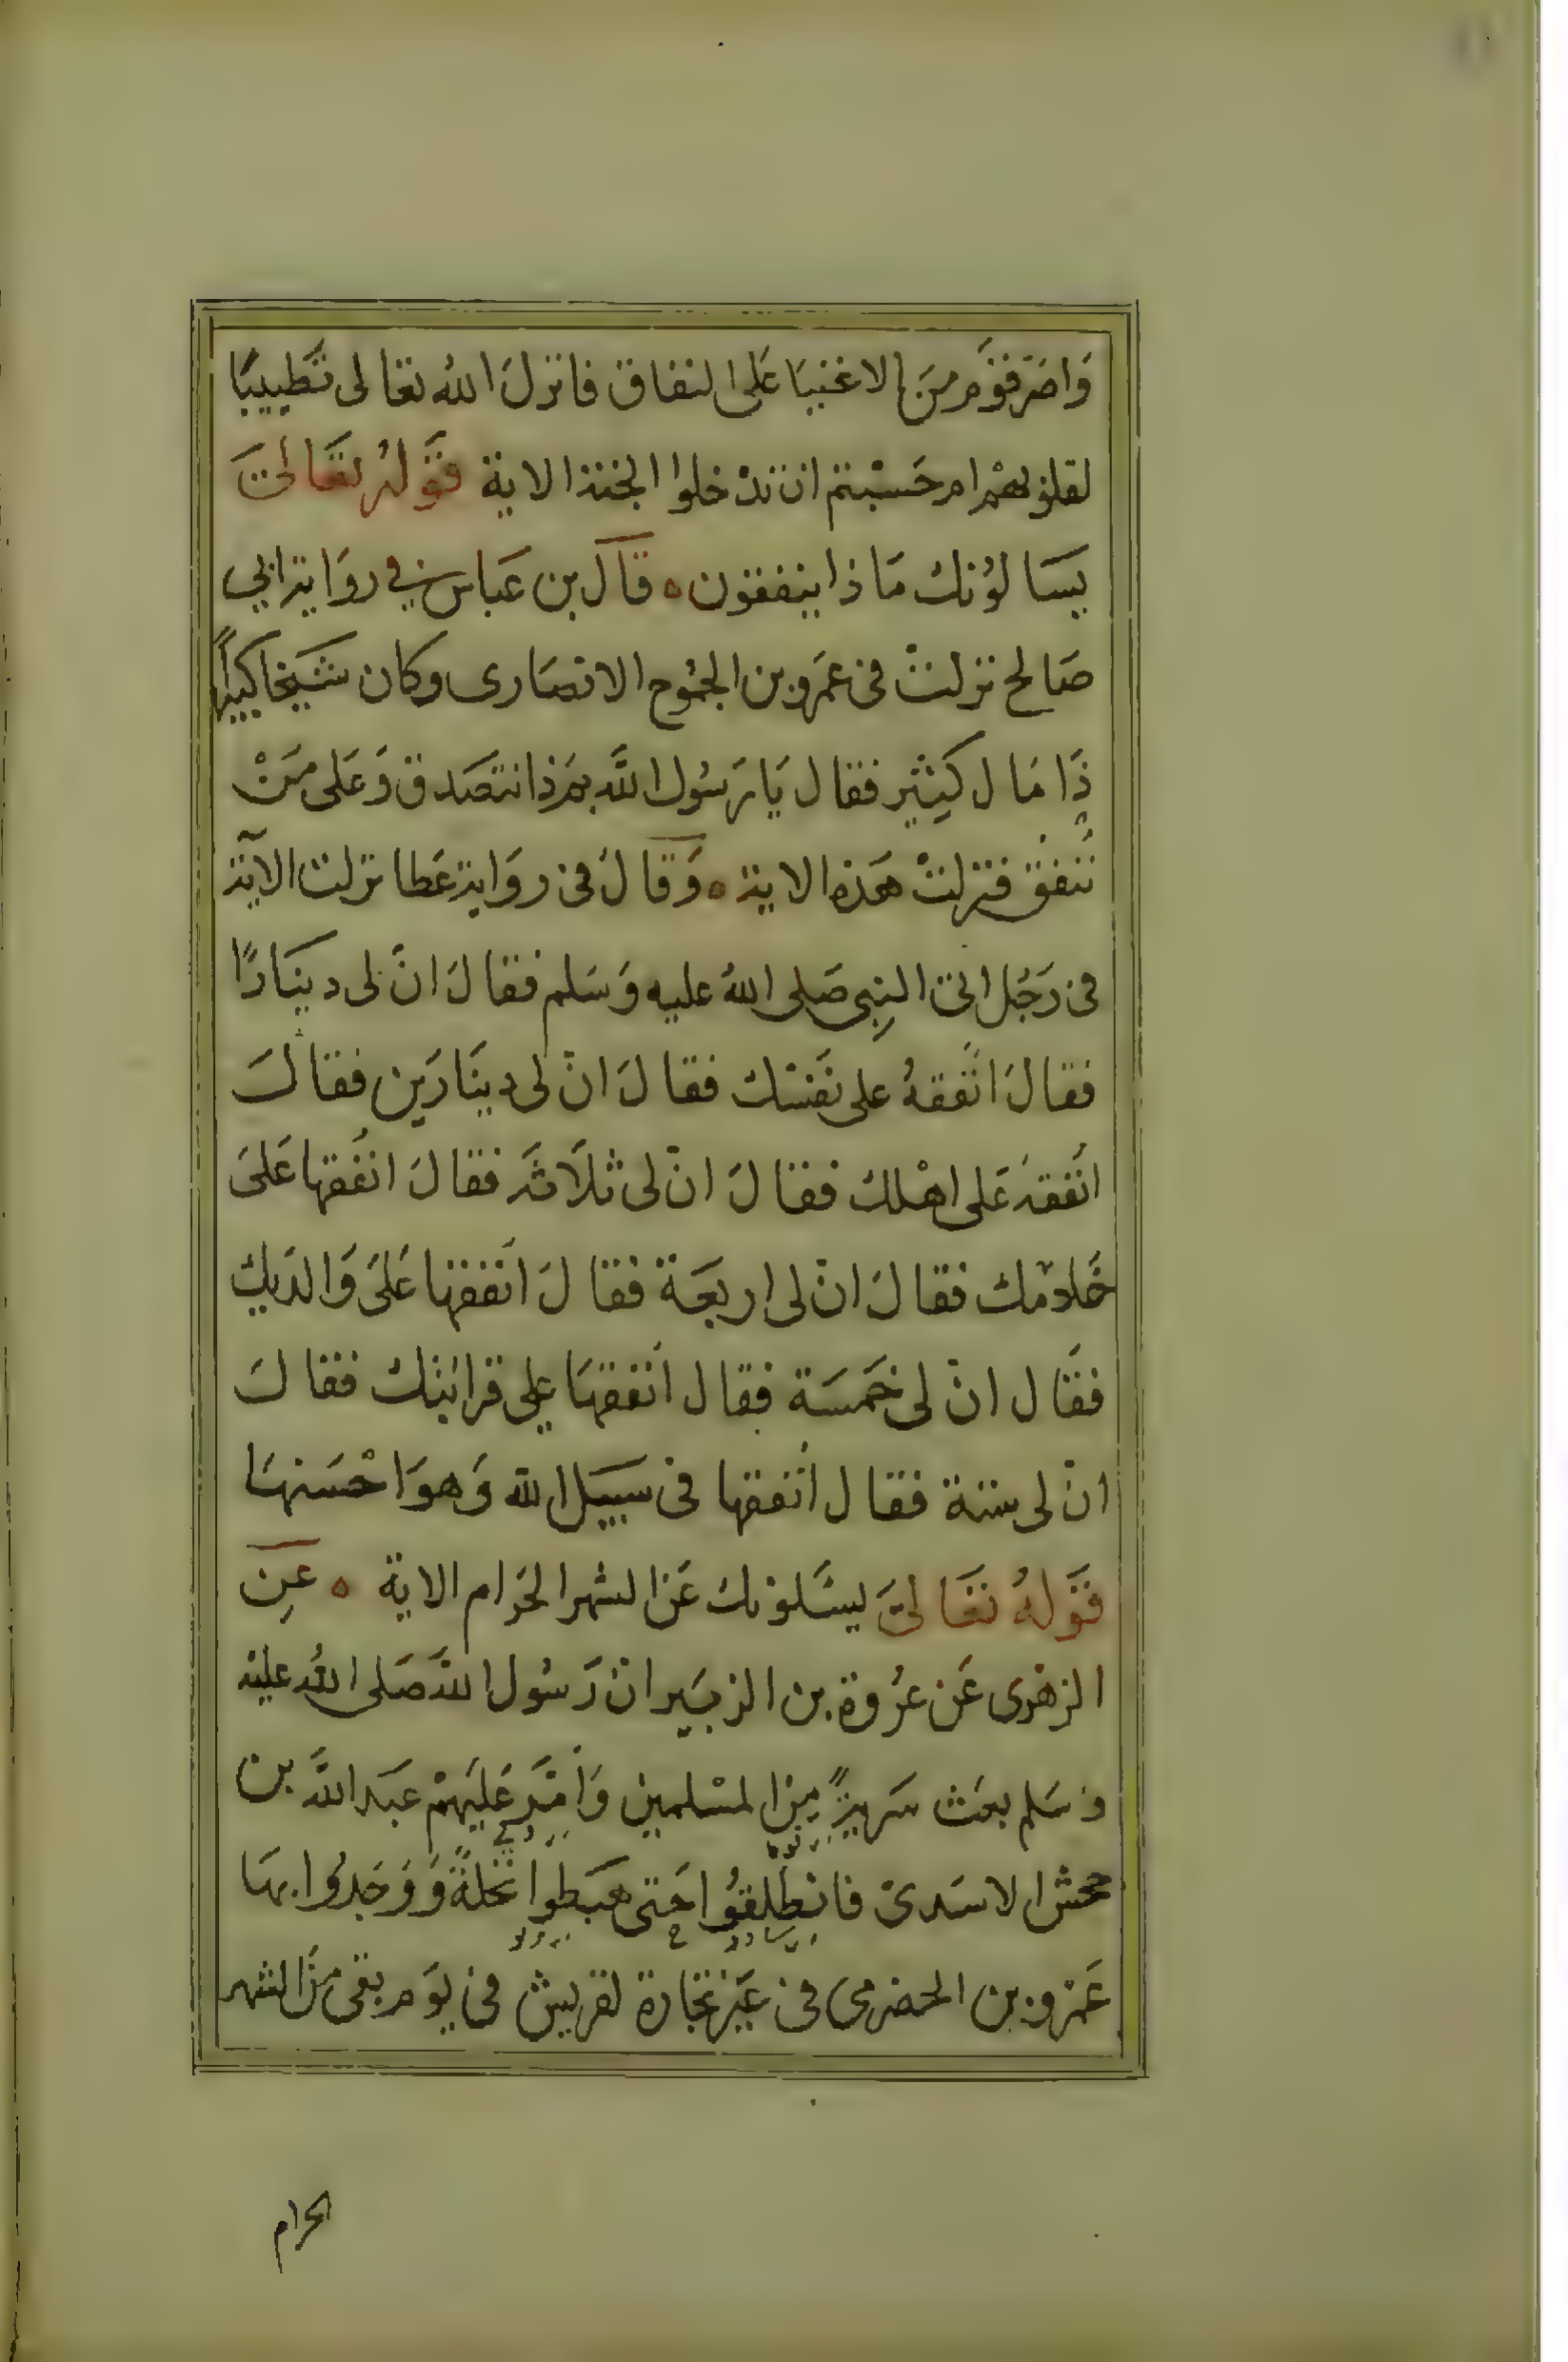 وَاصَرّ قوَم مِنَ الاغنيا عَلى النفاق فانزلَ اللهُ تعَالى تَطييبًا
لقلوبهمْ ام حَسْبتم ان تدْخلوا الجنة الاية قَوَلهُ تعَالىَ
يسَالوُنك مَاذا ينفقون ه قاَل بن عَباس في روَاية ابي
صَالح نزلتْ فى عَمَروبن الجمُوح الانصَارى وكان شَيخا كبيراً
ذَا مَال كَثِير فقال يَا رَسُول اللهَّ بمَ ذا نتصَدق وَعَلى مَنْ
نُنفق فنزلتْ هَذه الاية ه وَقَالَ فى روَاية عَطا نزلت الاَية
فى رَجُل اتى النِبى صَلى اللهُ عليه وَسَلم فقالَ انَّ لى دينَارًا
فقالَ انَفقهُ على نفَسْك فقالَ انّ لى دينَارَين فقالَ
انَفقهَ عَلى اهْلك فقالَ انّ لى ثلاَثَة فقالَ انفُقها عَلىَ
خَادمك فقالَ انّ لى اربعَة فقالَ اَنفقها عَلىَ وَالدَيك
فقَال انّ لى خَمسَة فقال اَنفقهَا على قرابتك فقالَ
انّ لى ستة فقال اُنفقها فى سبَيَل الله وَهوَ احْسَنهَا
قَوَلهُ تعَالىَ يسَّلونك عَن الشهر الحَرام الاية ه عَنِ
الزهرى عَن عرُوة بن الزبَير انّ رَسُول اللهَ صَلى اللهُ عليه
وَسَلم بعَث سَريةً مِن المسْلمين وَامَّرَ عَليَهمْ عبَد اللهَّ بن
جحش الاسَدىّ فانطلقوُا حَتى هبَطوا نخلةً وَوَجَدُوا بهَا
عَمَروبن الحضرمى فى عَير تجارة لقريش فى يوَم بقى مَن الشهر
الحرام